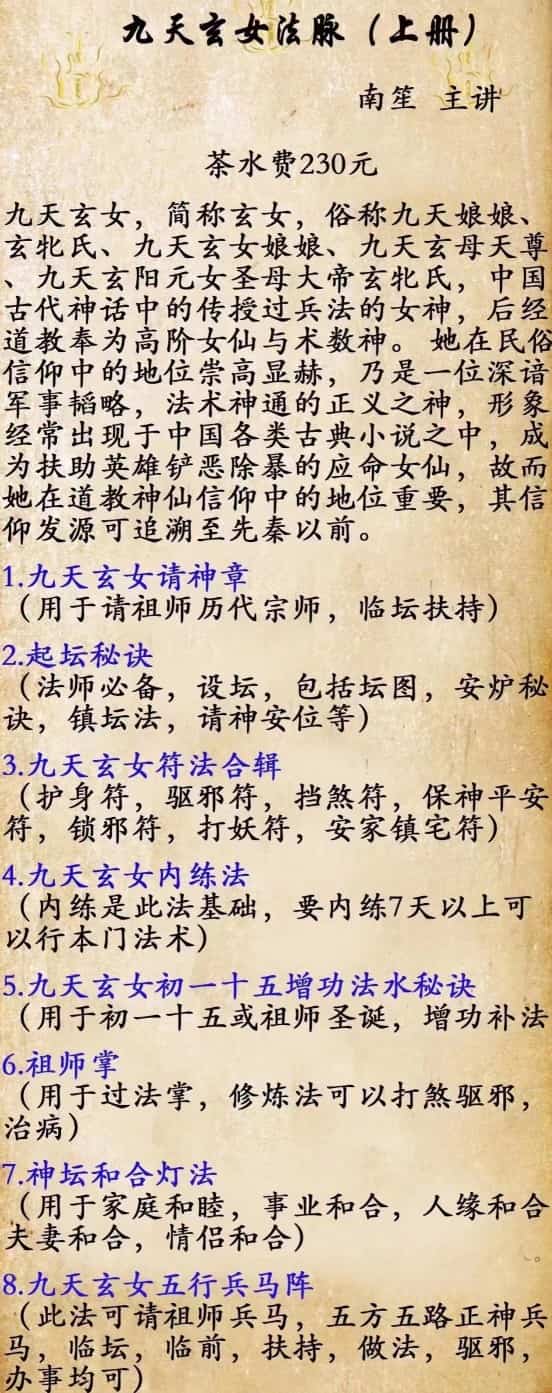 九天玄女法脉（上册）
南笙 主讲
茶水费230元
九天玄女，简称玄女，俗称九天娘娘、
玄牝氏、九天玄女娘娘、九天玄母天尊
、九天玄阳元女圣母大帝玄牝氏，中国
古代神话中的传授过兵法的女神，后经
道教奉为高阶女仙与术数神。 她在民俗
信仰中的地位崇高显赫，乃是一位深谙
军事韬略，法术神通的正义之神，形象
经常出现于中国各类古典小说之中，成
为扶助英雄铲恶除暴的应命女仙，故而
她在道教神仙信仰中的地位重要，其信
仰发源可追溯至先秦以前。
1.九天玄女请神章
（用于请祖师历代宗师，临坛扶持）
2.起坛秘诀
（法师必备，设坛，包括坛图，安炉秘
诀，镇坛法，请神安位等）
3.九天玄女符法合辑
（护身符，驱邪符，挡煞符，保神平安
符，锁邪符，打妖符，安家镇宅符）
4.九天玄女内练法
（内练是此法基础，要内练7天以上可
以行本门法术）
5.九天玄女初一十五增功法水秘诀
（用于初一十五或祖师圣诞，增功补法
6.祖师掌
（用于过法掌，修炼法可以打煞驱邪，
治病）
7.神坛和合灯法
（用于家庭和睦，事业和合，人缘和合
夫妻和合，情侣和合）
8.九天玄女五行兵马阵
（此法可请祖师兵马，五方五路正神兵
马，临坛，临前，扶持，做法，驱邪，
办事均可）